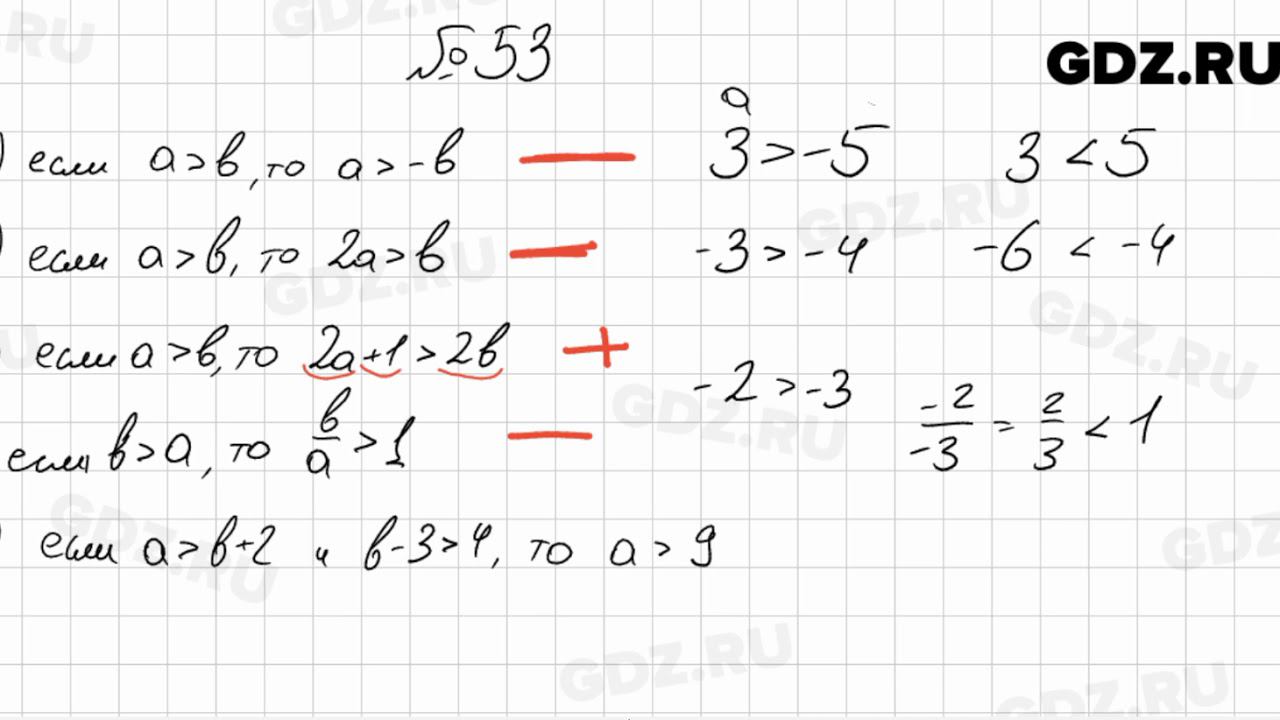 № 53
GDZ.RU
) если a > в, то a > -в — a 3 > -5 3 < 5
) если a > в, то 2a > в — -3 > -4 -6 < -4
если a > в, то 2a + 1 > 2в +
если в > a, то в/a > 1 — -2 > -3 -2/-3 = 2/3 < 1
) если a > в + 2 и в - 3 > 4, то a > 9